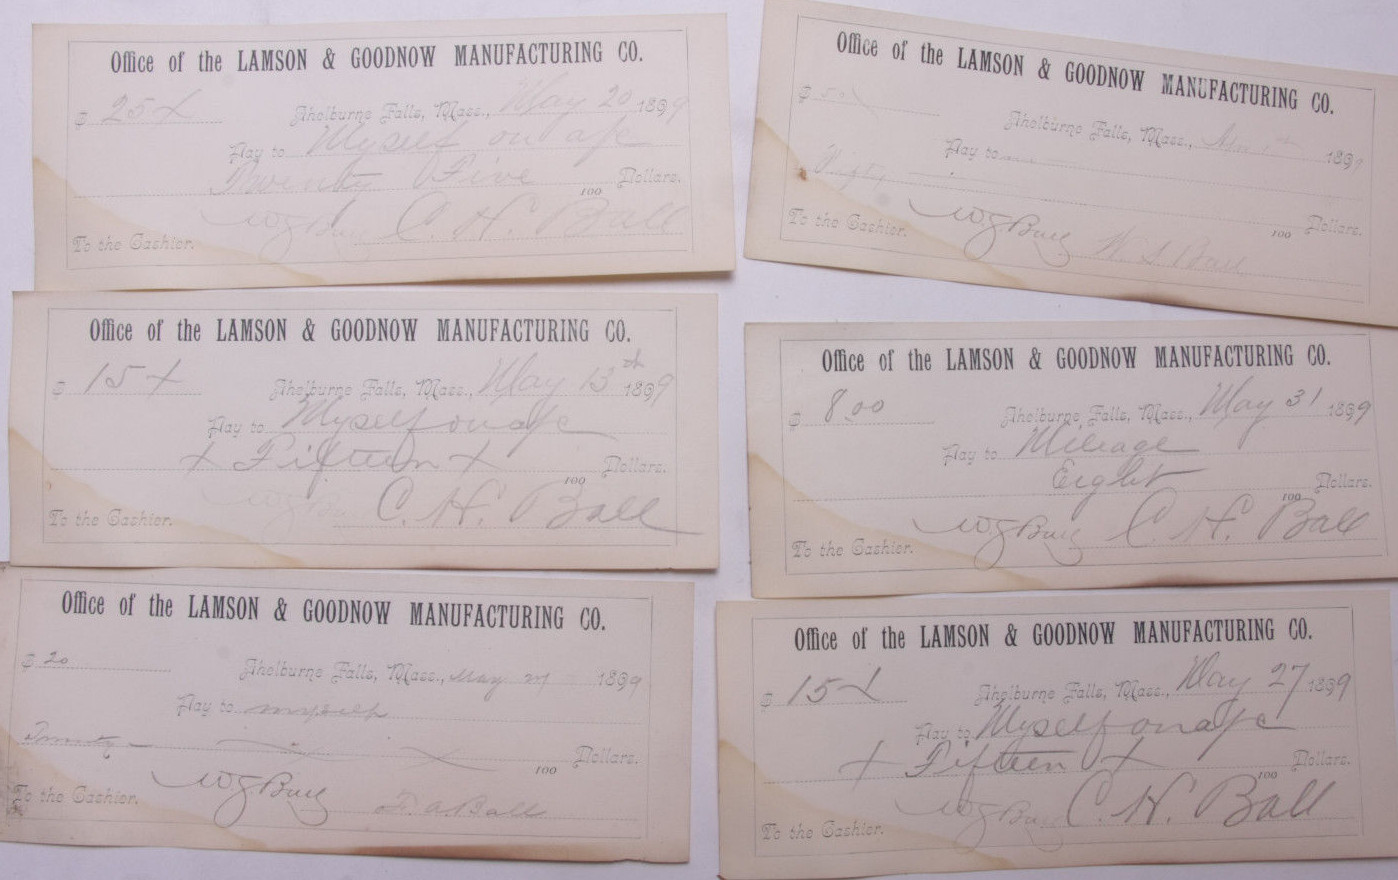 Office of the LAMSON & GOODNOW MANUFACTURING CO.
$ 25 x Shelburne Falls, Mass., May 20 1899
Pay to Myself on a/c
Twenty Five 100 Dollars.
C. H. Ball
To the Cashier.
Office of the LAMSON & GOODNOW MANUFACTURING CO.
$ 15 x Shelburne Falls, Mass., May 13th 1899
Pay to Myself on a/c
x Fifteen x 100 Dollars.
To the Cashier. C. H. Ball
Office of the LAMSON & GOODNOW MANUFACTURING CO.
$ 20 Shelburne Falls, Mass., May 1899
Pay to myself
Twenty 100 Dollars.
To the Cashier. F. A. Ball
Office of the LAMSON & GOODNOW MANUFACTURING CO.
$ Shelburne Falls, Mass., 1899
Pay to
100 Dollars.
To the Cashier.
Office of the LAMSON & GOODNOW MANUFACTURING CO.
$ 8.00 Shelburne Falls, Mass., May 31 1899
Pay to Mileage
Eight 100 Dollars.
To the Cashier. C. H. Ball
Office of the LAMSON & GOODNOW MANUFACTURING CO.
$ 15 x Shelburne Falls, Mass., May 27 1899
Pay to Myself on a/c
x Fifteen x 100 Dollars.
To the Cashier. C. H. Ball